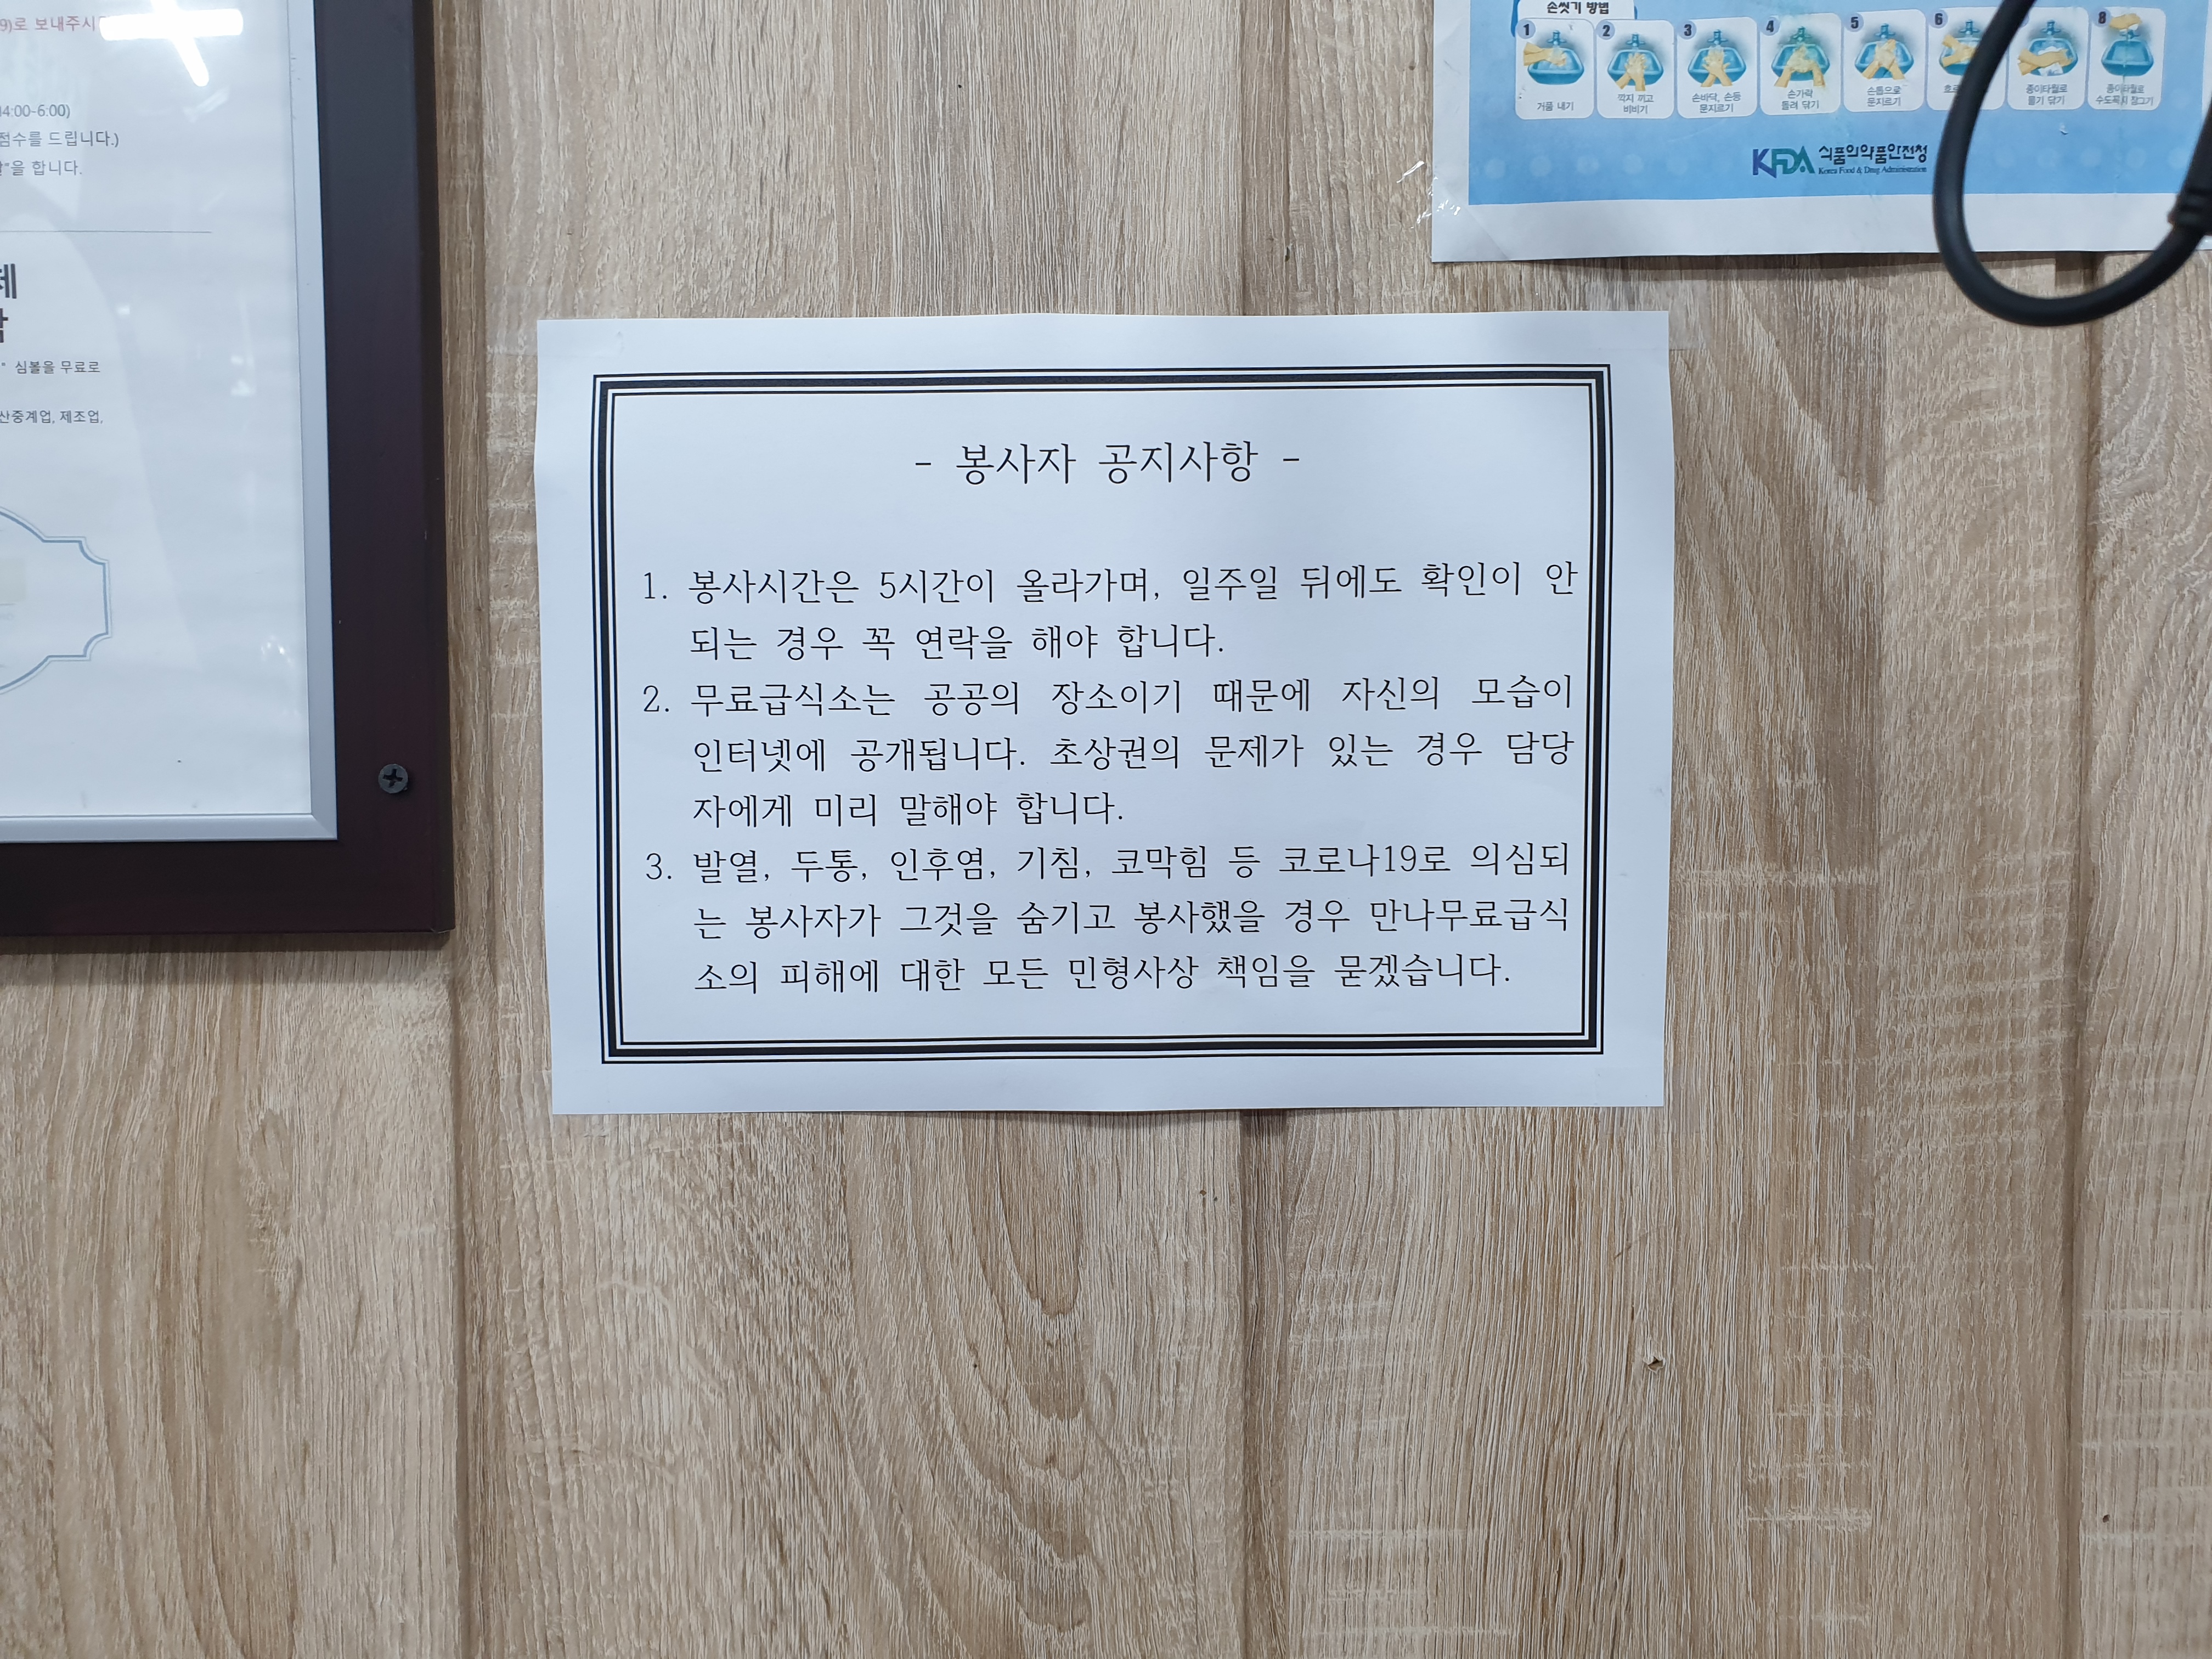 9)로 보내주시
04:00-6:00)
점수를 드립니다.)
을 합니다.
제
심볼을 무료로
산중계업, 제조업,
손씻기 방법
1
2
3
4
5
6
8
거품 내기
깍지 끼고
비비기
손바닥, 손등
문지르기
손가락
돌려 닦기
손톱으로
문지르기
종이타월로
물기 닦기
종이타월로
수도꼭지 잠그기
KFDA 식품의약품안전청
Korea Food & Drug Administration
- 봉사자 공지사항 -
1. 봉사시간은 5시간이 올라가며, 일주일 뒤에도 확인이 안
되는 경우 꼭 연락을 해야 합니다.
2. 무료급식소는 공공의 장소이기 때문에 자신의 모습이
인터넷에 공개됩니다. 초상권의 문제가 있는 경우 담당
자에게 미리 말해야 합니다.
3. 발열, 두통, 인후염, 기침, 코막힘 등 코로나19로 의심되
는 봉사자가 그것을 숨기고 봉사했을 경우 만나무료급식
소의 피해에 대한 모든 민형사상 책임을 묻겠습니다.